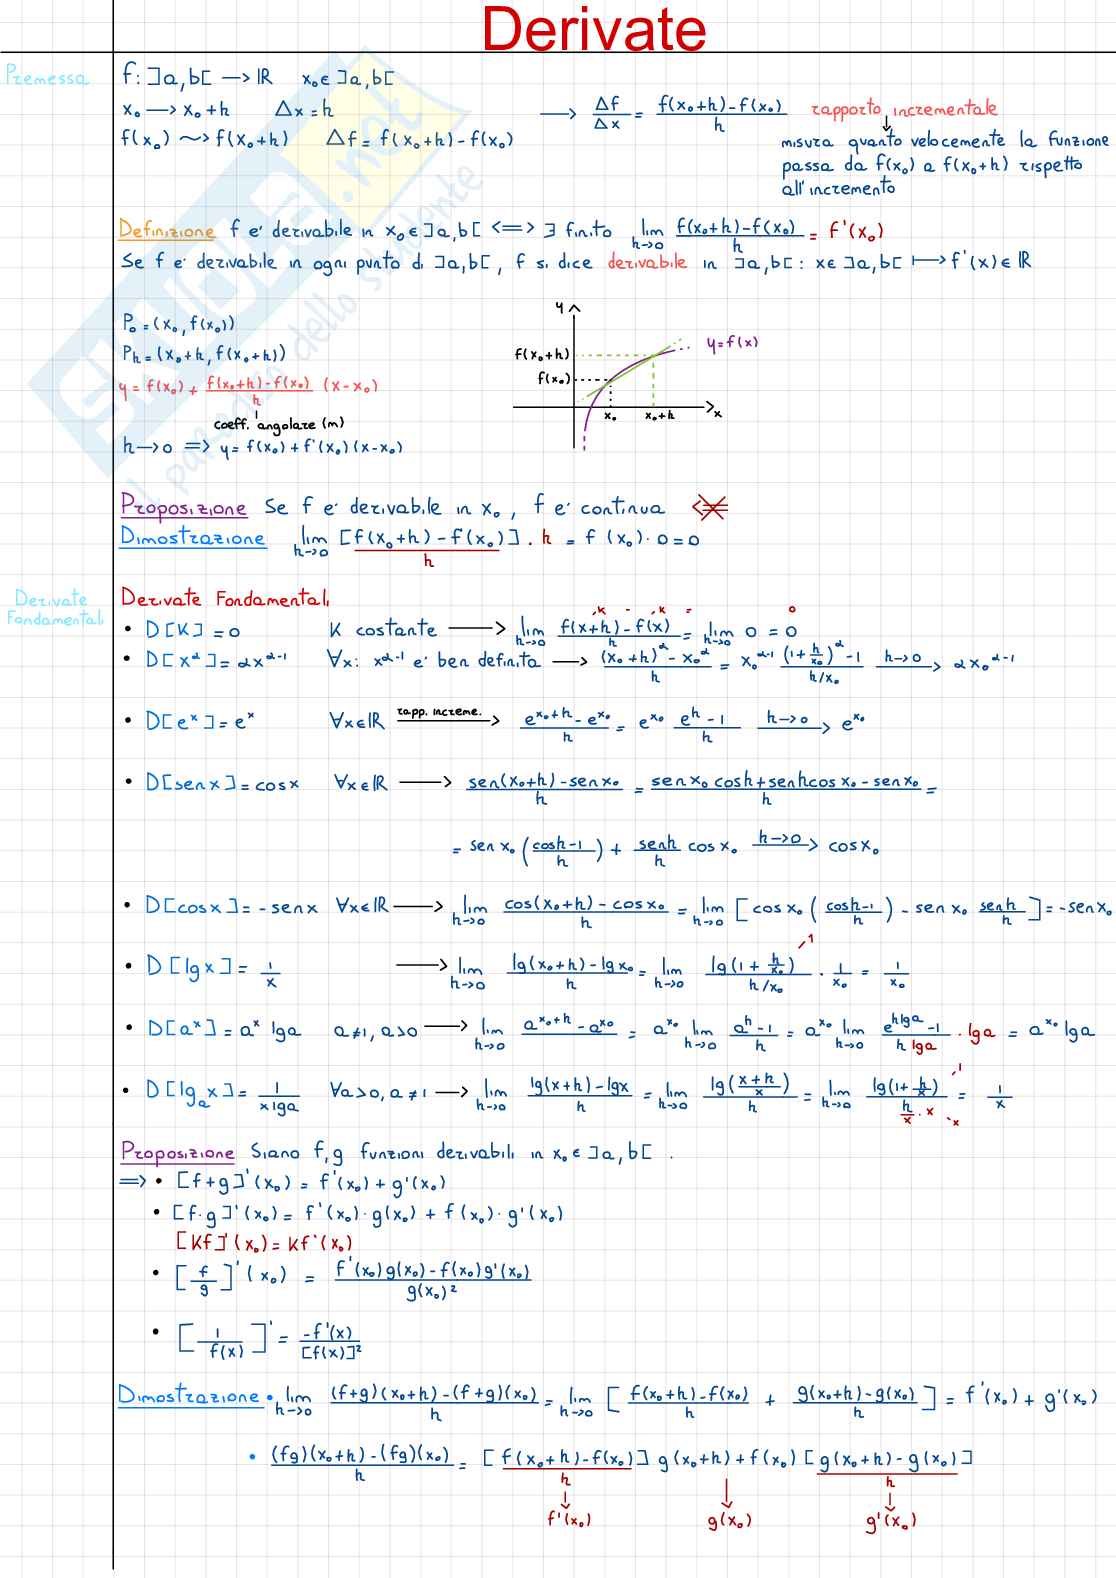 Derivate
Premessa
f: ]a,b[ → ℝ x₀ ∈ ]a,b[
x₀ → x₀+h Δx = h → Δf/Δx = (f(x₀+h) - f(x₀))/h rapporto incrementale
f(x₀) ⤳ f(x₀+h) Δf = f(x₀+h) - f(x₀)
misura quanto velocemente la funzione
passa da f(x₀) a f(x₀+h) rispetto
all'incremento
Definizione f e' derivabile in x₀ ∈ ]a,b[ <=> ∃ finito lim h→0 (f(x₀+h) - f(x₀))/h = f'(x₀)
Se f e' derivabile in ogni punto di ]a,b[, f si dice derivabile in ]a,b[: x ∈ ]a,b[ ↦ f'(x) ∈ ℝ
P₀ = (x₀, f(x₀))
Pₕ = (x₀+h, f(x₀+h))
y = f(x₀) + (f(x₀+h) - f(x₀))/h (x-x₀)
coeff. angolare (m)
h→0 => y = f(x₀) + f'(x₀)(x-x₀)
y
f(x₀+h)
f(x₀)
y=f(x)
x₀ x₀+h x
Proposizione Se f e' derivabile in x₀, f e' continua <=
Dimostrazione lim h→0 [f(x₀+h) - f(x₀)]/h . h = f (x₀) · 0 = 0
Derivate Fondamentali
Derivate Fondamentali
• D[K] = 0 K costante → lim h→0 (f(x+h) - f(x))/h = lim h→0 0 = 0
K - K = 0
• D[x^α] = αx^(α-1) ∀x: x^(α-1) e' ben definito → ((x₀+h)^α - x₀^α)/h = x₀^(α-1) ((1+h/x₀)^α - 1)/(h/x₀) h→0 → αx₀^(α-1)
• D[e^x] = e^x ∀x∈ℝ rapp. increme. → (e^(x₀+h) - e^(x₀))/h = e^(x₀) (e^h - 1)/h h→0 → e^(x₀)
• D[senx] = cosx ∀x∈ℝ → (sen(x₀+h) - senx₀)/h = (senx₀ cosh + senh cosx₀ - senx₀)/h =
= senx₀ ((cosh-1)/h) + senh/h cosx₀ h→0 → cosx₀
• D[cosx] = -senx ∀x∈ℝ → lim h→0 (cos(x₀+h) - cosx₀)/h = lim h→0 [cosx₀ ((cosh-1)/h) - senx₀ senh/h] = -senx₀
• D[lgx] = 1/x → lim h→0 (lg(x₀+h) - lgx₀)/h = lim h→0 lg(1+h/x₀)/(h/x₀) · 1/x₀ = 1/x₀
1
• D[a^x] = a^x lga a≠1, a>0 → lim h→0 (a^(x₀+h) - a^(x₀))/h = a^(x₀) lim h→0 (a^h - 1)/h = a^(x₀) lim h→0 (e^(hlga) - 1)/(h lga) · lga = a^(x₀) lga
• D[lgₐx] = 1/(xlga) ∀a>0, a≠1 → lim h→0 (lg(x+h) - lgx)/h = lim h→0 lg((x+h)/x)/h = lim h→0 lg(1+h/x)/(h/x · x) = 1/x
1
x
Proposizione Siano f,g funzioni derivabili in x₀ ∈ ]a,b[ .
=> • [f+g]'(x₀) = f'(x₀) + g'(x₀)
• [f·g]'(x₀) = f'(x₀)·g(x₀) + f(x₀)·g'(x₀)
[Kf]'(x₀) = Kf'(x₀)
• [f/g]'(x₀) = (f'(x₀)g(x₀) - f(x₀)g'(x₀))/g(x₀)²
• [1/f(x)]' = -f'(x)/[f(x)]²
Dimostrazione • lim h→0 ((f+g)(x₀+h) - (f+g)(x₀))/h = lim h→0 [(f(x₀+h) - f(x₀))/h + (g(x₀+h) - g(x₀))/h] = f'(x₀) + g'(x₀)
• ((fg)(x₀+h) - (fg)(x₀))/h = [f(x₀+h) - f(x₀)]/h g(x₀+h) + f(x₀) [g(x₀+h) - g(x₀)]/h
f'(x₀) g(x₀) g'(x₀)
SKUOLA.net
il paradiso dello studente